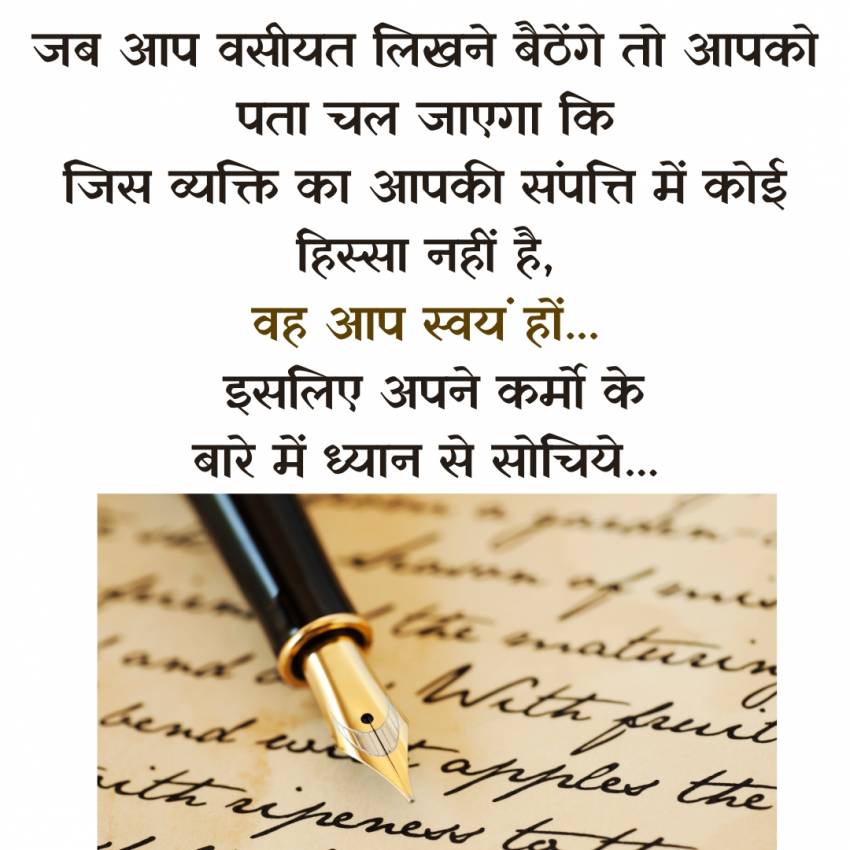 जब आप वसीयत लिखने बैठेंगे तो आपको
पता चल जाएगा कि
जिस व्यक्ति का आपकी संपत्ति में कोई
हिस्सा नहीं है,
वह आप स्वयं हों...
इसलिए अपने कर्मो के
बारे में ध्यान से सोचिये...
a garden-
season of mis
the maturing
and With fruit
bend apples the
with ripeness to